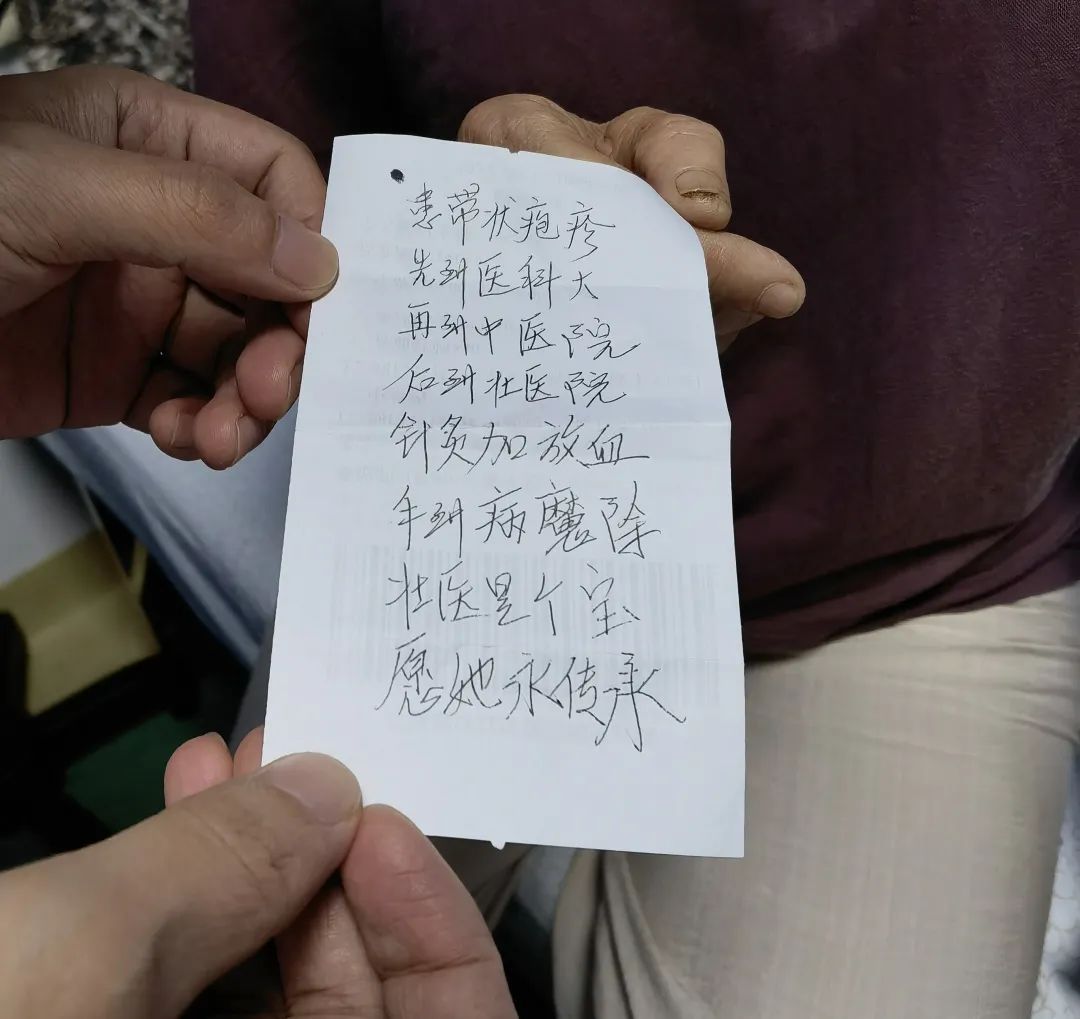 患带状疱疹
先到医科大
再到中医院
后到壮医院
针灸加放血
手到病魔除
壮医是个宝
愿她永传承